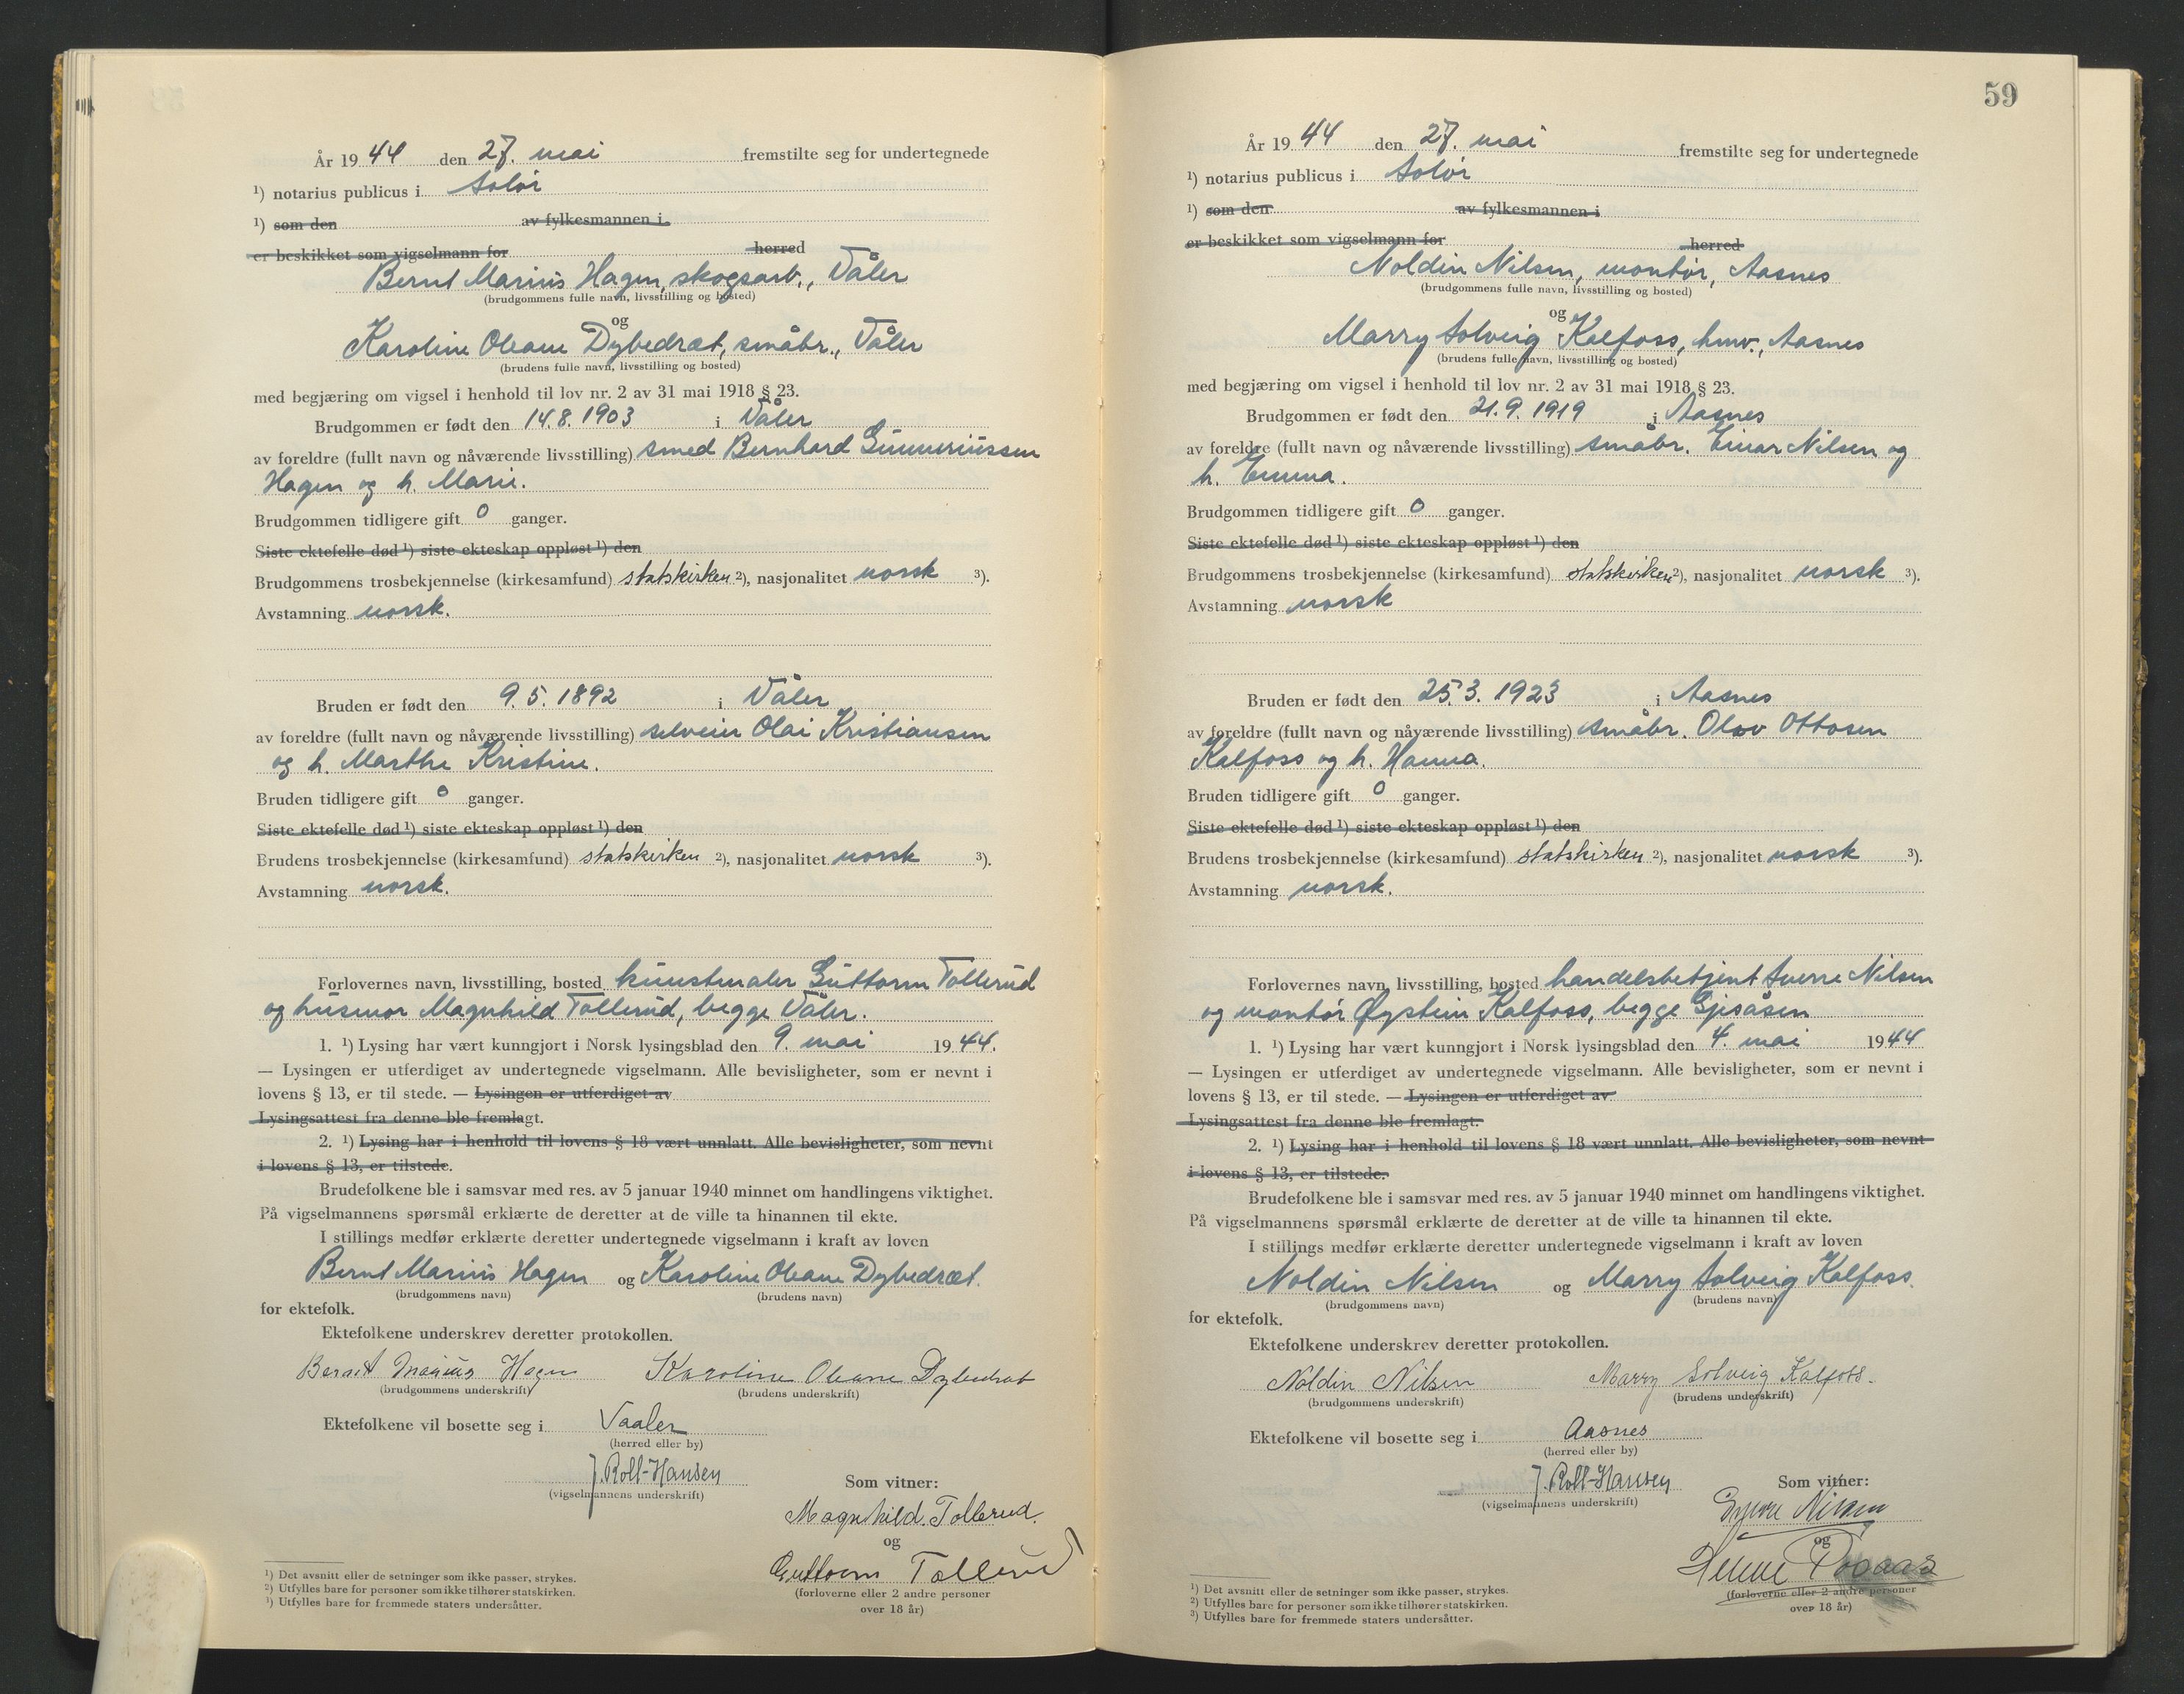 År 19 44 den 27. mai fremstilte seg for undertegnede
¹) notarius publicus i Solør
¹) som den av fylkesmannen i
er beskikket som vigselmann for herred
Bernt Marius Hagen, skogsarb., Våler
(brudgommens fulle navn, livsstilling og bosted)
og
Karoline Oleane Dybedræt, småbr., Våler
(brudens fulle navn, livsstilling og bosted)
med begjæring om vigsel i henhold til lov nr. 2 av 31 mai 1918 § 23.
Brudgommen er født den 14.8.1903 i Våler
av foreldre (fullt navn og nåværende livsstilling) smed Bernhard Gunneriussen
Hagen og h. Marie.
Brudgommen tidligere gift 0 ganger.
Siste ektefelle død ¹) siste ekteskap oppløst ¹) den
Brudgommens trosbekjennelse (kirkesamfund) statskirken ²), nasjonalitet norsk ³).
Avstamning norsk.
Bruden er født den 9.5.1892 i Våler
av foreldre (fullt navn og nåværende livsstilling) selveier Olai Kristiansen
og h. Marthe Kristine.
Bruden tidligere gift 0 ganger.
Siste ektefelle død ¹) siste ekteskap oppløst ¹) den
Brudens trosbekjennelse (kirkesamfund) statskirken ²), nasjonalitet norsk ³).
Avstamning norsk.
Forlovernes navn, livsstilling, bosted kunstmaler Guttorm Tollerud
og husmor Magnhild Tollerud, begge Våler.
1. ¹) Lysing har vært kunngjort i Norsk lysingsblad den 9. mai 19 44.
— Lysingen er utferdiget av undertegnede vigselmann. Alle bevisligheter, som er nevnt i
lovens § 13, er til stede. — Lysingen er utferdiget av
Lysingsattest fra denne ble fremlagt.
2. ¹) Lysing har i henhold til lovens § 18 vært unnlatt. Alle bevisligheter, som nevnt
i lovens § 13, er tilstede.
Brudefolkene ble i samsvar med res. av 5 januar 1940 minnet om handlingens viktighet.
På vigselmannens spørsmål erklærte de deretter at de ville ta hinannen til ekte.
I stillings medfør erklærte deretter undertegnede vigselmann i kraft av loven
Bernt Marius Hagen og Karoline Oleane Dybedræt.
(brudgommens navn) (brudens navn)
for ektefolk.
Ektefolkene underskrev deretter protokollen.
Bernt Marius Hagen Karoline Oleane Dybedræt
(brudgommens underskrift) (brudens underskrift)
Ektefolkene vil bosette seg i Vaaler
(herred eller by)
J. Roll-Hansen
(vigselmannens underskrift)
Som vitner:
Magnhild Tollerud.
og
Guttorm Tollerud
(forloverne eller 2 andre personer
over 18 år)
¹) Det avsnitt eller de setninger som ikke passer, strykes.
²) Utfylles bare for personer som ikke tilhører statskirken.
³) Utfylles bare for fremmede staters undersåtter.
59
År 19 44 den 27. mai fremstilte seg for undertegnede
¹) notarius publicus i Solør
¹) som den av fylkesmannen i
er beskikket som vigselmann for herred
Noldin Nilsen, montør, Aasnes
(brudgommens fulle navn, livsstilling og bosted)
og
Marry Solveig Kalfoss, hmv., Aasnes
(brudens fulle navn, livsstilling og bosted)
med begjæring om vigsel i henhold til lov nr. 2 av 31 mai 1918 § 23.
Brudgommen er født den 21.9.1919 i Aasnes
av foreldre (fullt navn og nåværende livsstilling) småbr. Einar Nilsen og
h. Emma.
Brudgommen tidligere gift 0 ganger.
Siste ektefelle død ¹) siste ekteskap oppløst ¹) den
Brudgommens trosbekjennelse (kirkesamfund) statskirken ²), nasjonalitet norsk ³).
Avstamning norsk
Bruden er født den 25.3.1923 i Aasnes
av foreldre (fullt navn og nåværende livsstilling) småbr. Olav Ottosen
Kalfoss og h. Hanna.
Bruden tidligere gift 0 ganger.
Siste ektefelle død ¹) siste ekteskap oppløst ¹) den
Brudens trosbekjennelse (kirkesamfund) statskirken ²), nasjonalitet norsk ³).
Avstamning norsk.
Forlovernes navn, livsstilling, bosted handelsbetjent Sverre Nilsen
og montør Øystein Kalfoss, begge Gjesåsen
1. ¹) Lysing har vært kunngjort i Norsk lysingsblad den 4. mai 19 44
— Lysingen er utferdiget av undertegnede vigselmann. Alle bevisligheter, som er nevnt i
lovens § 13, er til stede. — Lysingen er utferdiget av
Lysingsattest fra denne ble fremlagt.
2. ¹) Lysing har i henhold til lovens § 18 vært unnlatt. Alle bevisligheter, som nevnt
i lovens § 13, er tilstede.
Brudefolkene ble i samsvar med res. av 5 januar 1940 minnet om handlingens viktighet.
På vigselmannens spørsmål erklærte de deretter at de ville ta hinannen til ekte.
I stillings medfør erklærte deretter undertegnede vigselmann i kraft av loven
Noldin Nilsen og Marry Solveig Kalfoss.
(brudgommens navn) (brudens navn)
for ektefolk.
Ektefolkene underskrev deretter protokollen.
Noldin Nilsen Marry Solveig Kalfoss.
(brudgommens underskrift) (brudens underskrift)
Ektefolkene vil bosette seg i Aasnes
(herred eller by)
J. Roll-Hansen
(vigselmannens underskrift)
Som vitner:
Nilsen
og
(forloverne eller 2 andre personer
over 18 år)
¹) Det avsnitt eller de setninger som ikke passer, strykes.
²) Utfylles bare for personer som ikke tilhører statskirken.
³) Utfylles bare for fremmede staters undersåtter.